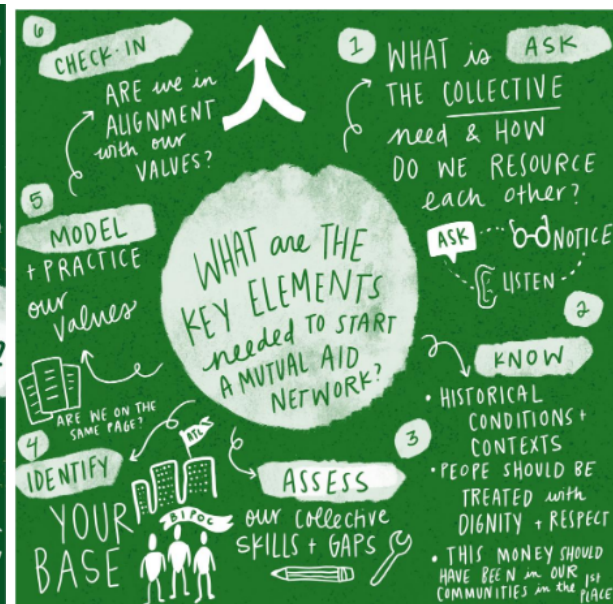 WHAT are THE
KEY ELEMENTS
needed TO START
A MUTUAL AID
NETWORK?
1
ASK
WHAT is
THE COLLECTIVE
need & HOW
DO WE RESOURCE
each other?
ASK
NOTICE
LISTEN
2
KNOW
• HISTORICAL
CONDITIONS +
CONTEXTS
• PEOPE SHOULD BE
TREATED with
DIGNITY + RESPECT
• THIS MONEY SHOULD
HAVE BEEN in OUR
COMMUNITIES in the 1st PLACE
3
ASSESS
our collective
SKILLS + GAPS
4
IDENTIFY
YOUR
BASE
ATL
BIPOC
5
MODEL
+ PRACTICE
our
values
ARE WE ON THE
SAME PAGE?
6
CHECK-IN
ARE we in
ALIGNMENT
with our
VALUES?
?